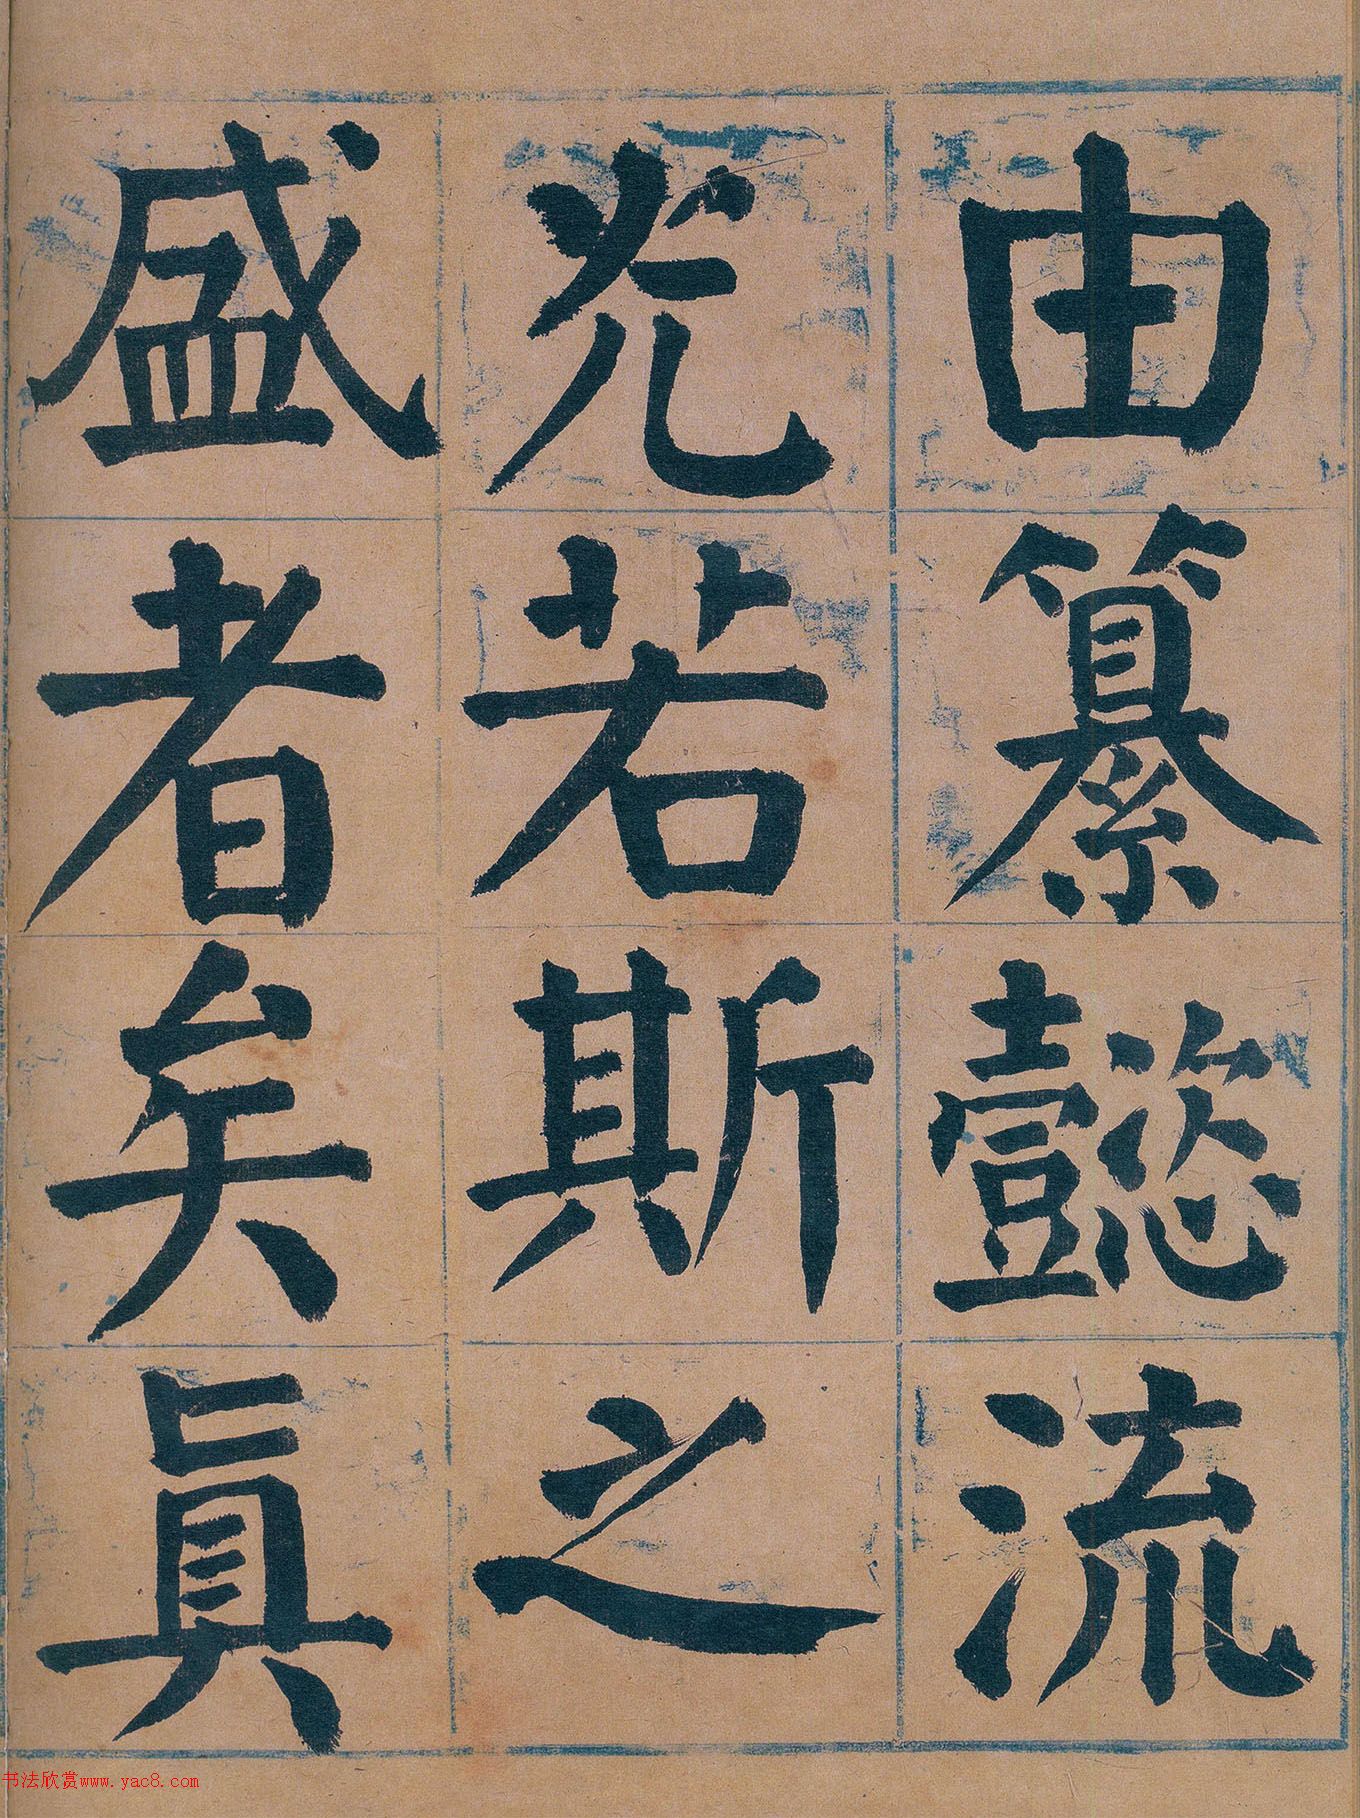 由纂懿流
光若斯之
盛者矣真
书法欣赏www.yac8.com